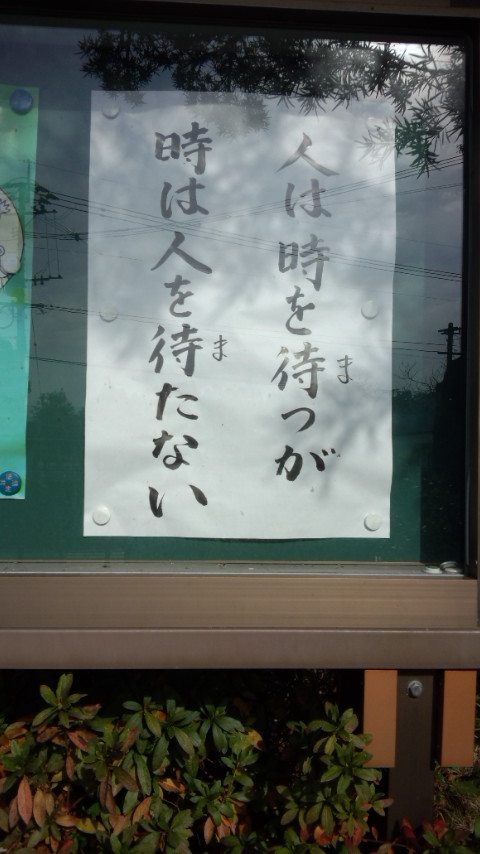 人は時を待つが
時は人を待たない